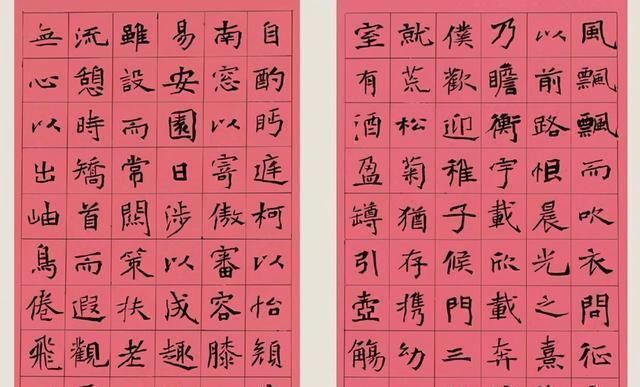 風飄飄而吹衣問征
以前路恨晨光之熹
乃瞻衡宇載欣載奔
僕歡迎稚子候門三
就荒松菊猶存携幼
室有酒盈罇引壺觴
自酌眄庭柯以怡顔
南窓以寄傲審容膝
易安園日涉以成趣
雖設而常關策扶老
流憩時矯首而遐觀
無心以出岫鳥倦飛